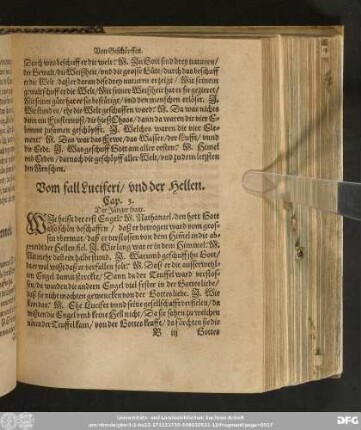 Von Geschöpffen.
Durch was beschuff er die welt? M. Jn Gott sind drey naturen/
der Gewalt/ die Weißheit/ vnd die grosse Güte/ durch das beschuff
er die Welt/ daß er daran dise drey naturen erzeigt/ Mit seinem
gewalt schuff er die Welt/ Mit seiner Weißheit hat er sie gezieret/
Mit seiner güte hat er sie bestätiget/ vnd den menschen erlöset. J.
Wie stund es/ ehe die Welt geschaffen ward? M. Da war nichts
dann ein Finsternuß/ die hieß Chaos/ dann da waren die vier Ele-
ment zusamen geschöpfft. J. Welches waren die vier Ele-
ment? M. Das war das Fewr/ das Wasser/ der Lufft/ vnnd
die Erde. J. Was geschuff Gott am aller ersten? M. Himel
vnd Erden/ darnach die geschöpff aller Welt/ vnd zu dem letzsten
den Menschen.
Vom fall Luciferi/ vnd der Hellen.
Cap. 3.
Der Jünger fragt.
WIe heißt der erst Engel? M. Nathanael/ den hett Gott
also schön beschaffen/ daß er betrogen ward vom gros-
sen vbermut/ daß er verstossen von dem Hemel in die ab-
grund der Hellen fiel. J. Wie lang war er in dem Himmel? M.
Nit mehr dañ ein halbe stund. J. Warumb geschuff jhn Gott/
der wol wißt daß er verfallen solt? M. Daß er die ausserwehl-
ten Engel damit sterckte/ Dann da der Teuffel ward verstos-
sen/ da wurden die andern Engel viel fester in der Gottes liebe/
daß sie nicht mochten gewencken von der Gottes liebe. J. Wie
kam das? M. Ehe Lucifer vnnd seine gesellschafft verfielen/ da
wißten die Engel vnd keine Hell nicht/ Da sie sahen zu welchen
nöten der Teuffel kam/ von der Gottes krafft/ da forchten sie die
B iij Gottes
Universitäts- und Landesbibliothek Sachsen-Anhalt
DFG